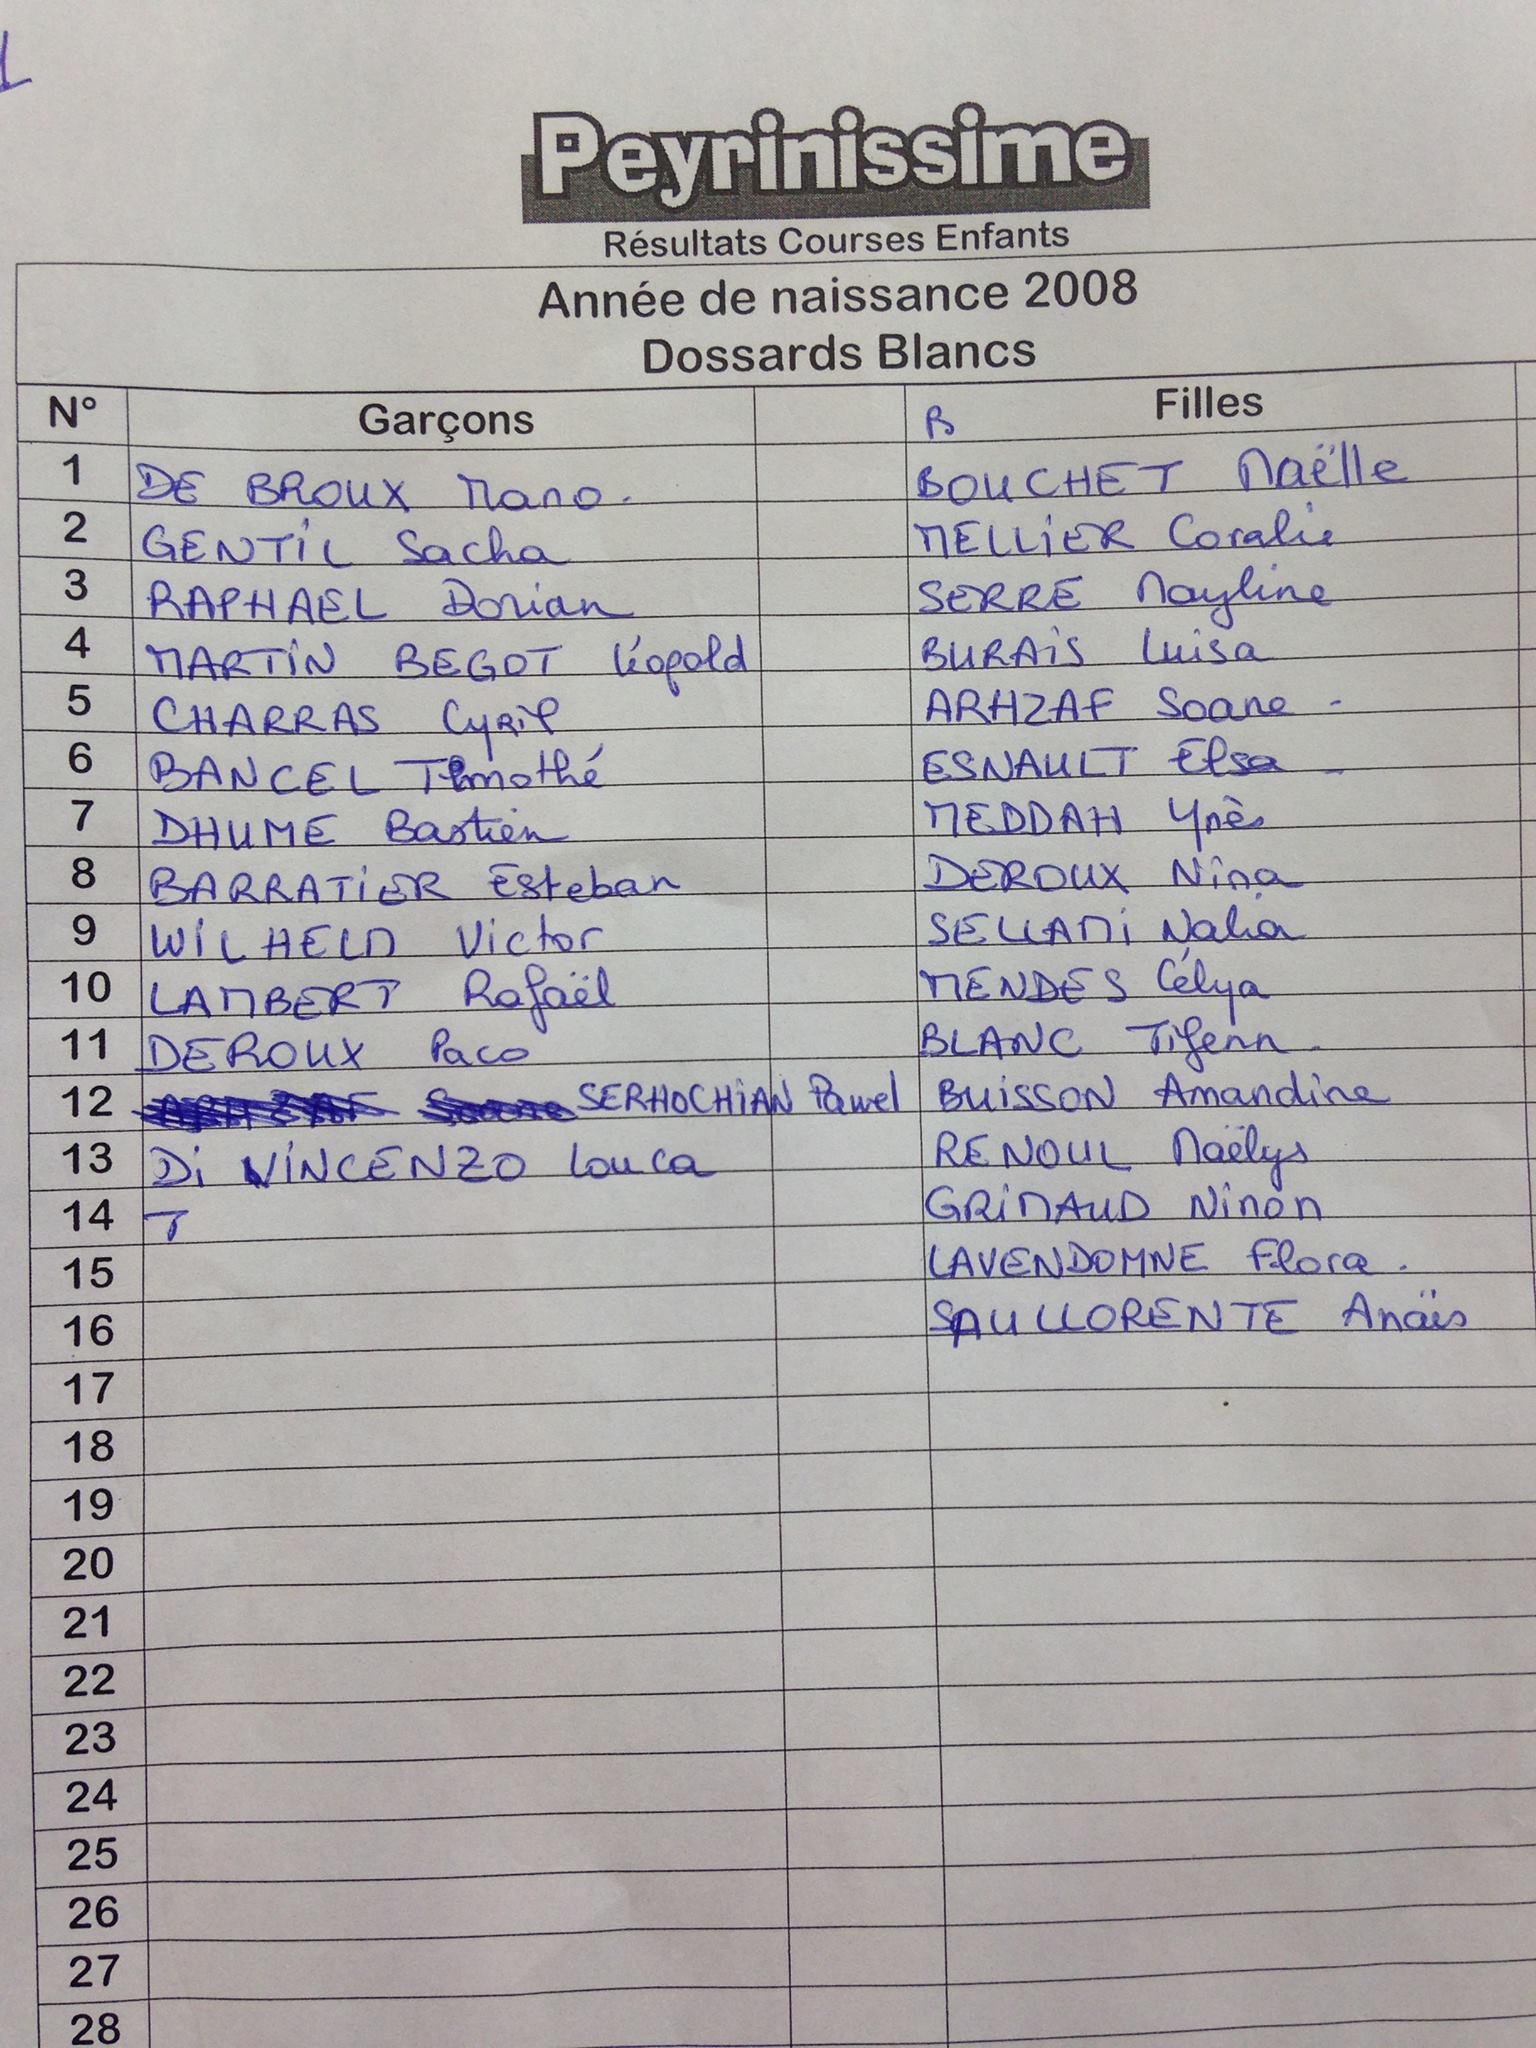 Peyrinissime
Résultats Courses Enfants
Année de naissance 2008
Dossards Blancs
N° Garçons B Filles
1 DE BROUX Mano. BOUCHET Maëlle
2 GENTIL Sacha MELLIER Coralie
3 RAPHAEL Dorian SERRE Mayline
4 MARTIN BEGOT Léopold BURAIS Luisa
5 CHARRAS Cyril ARHZAF Soane -
6 BANCEL Timothé ESNAULT Elsa -
7 DHUME Bastien MEDDAH Ynès
8 BARRATIER Esteban DEROUX Nina
9 WILHELM Victor SELLAMI Nalia
10 LAMBERT Rafaël MENDES Célya
11 DEROUX Paco BLANC Tifenn -
12 ARHZAF Soane SERHOCHIAN Pawel BUISSON Amandine
13 Di VINCENZO Louca RENOUL Maëlys
14 T GRIMAUD Ninon
15 LAVENDOMNE Flora .
16 SAULLORENTE Anaïs
17
18
19
20
21
22
23
24
25
26
27
28